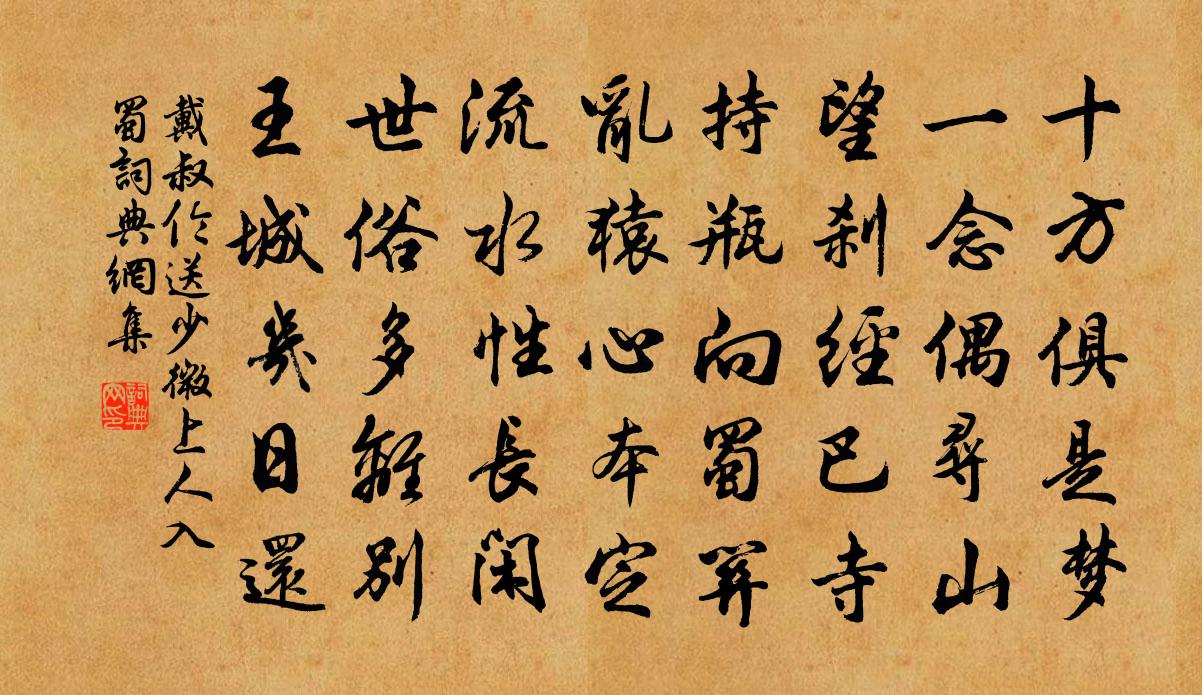 十方俱是梦
一念偶尋山
望刹經巴寺
持瓶向蜀關
亂猿心本定
流水性長閑
世俗多離別
王城幾日還
戴叔伦送少微上人入
蜀詞典網集
詞典网印